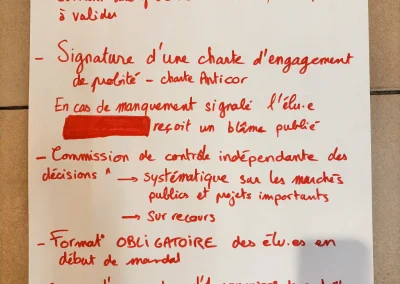 à valider
- Signature d'une charte d'engagement
de probité - charte Anticor
En cas de manquement signalé l'élu.e
reçoit un blâme publié
- Commission de contrôle indépendante des
décisions " → systématique sur les marchés
publics et projets importants
→ Sur recours
- Format° OBLIGATOIRE des élu.es en
début de mandat